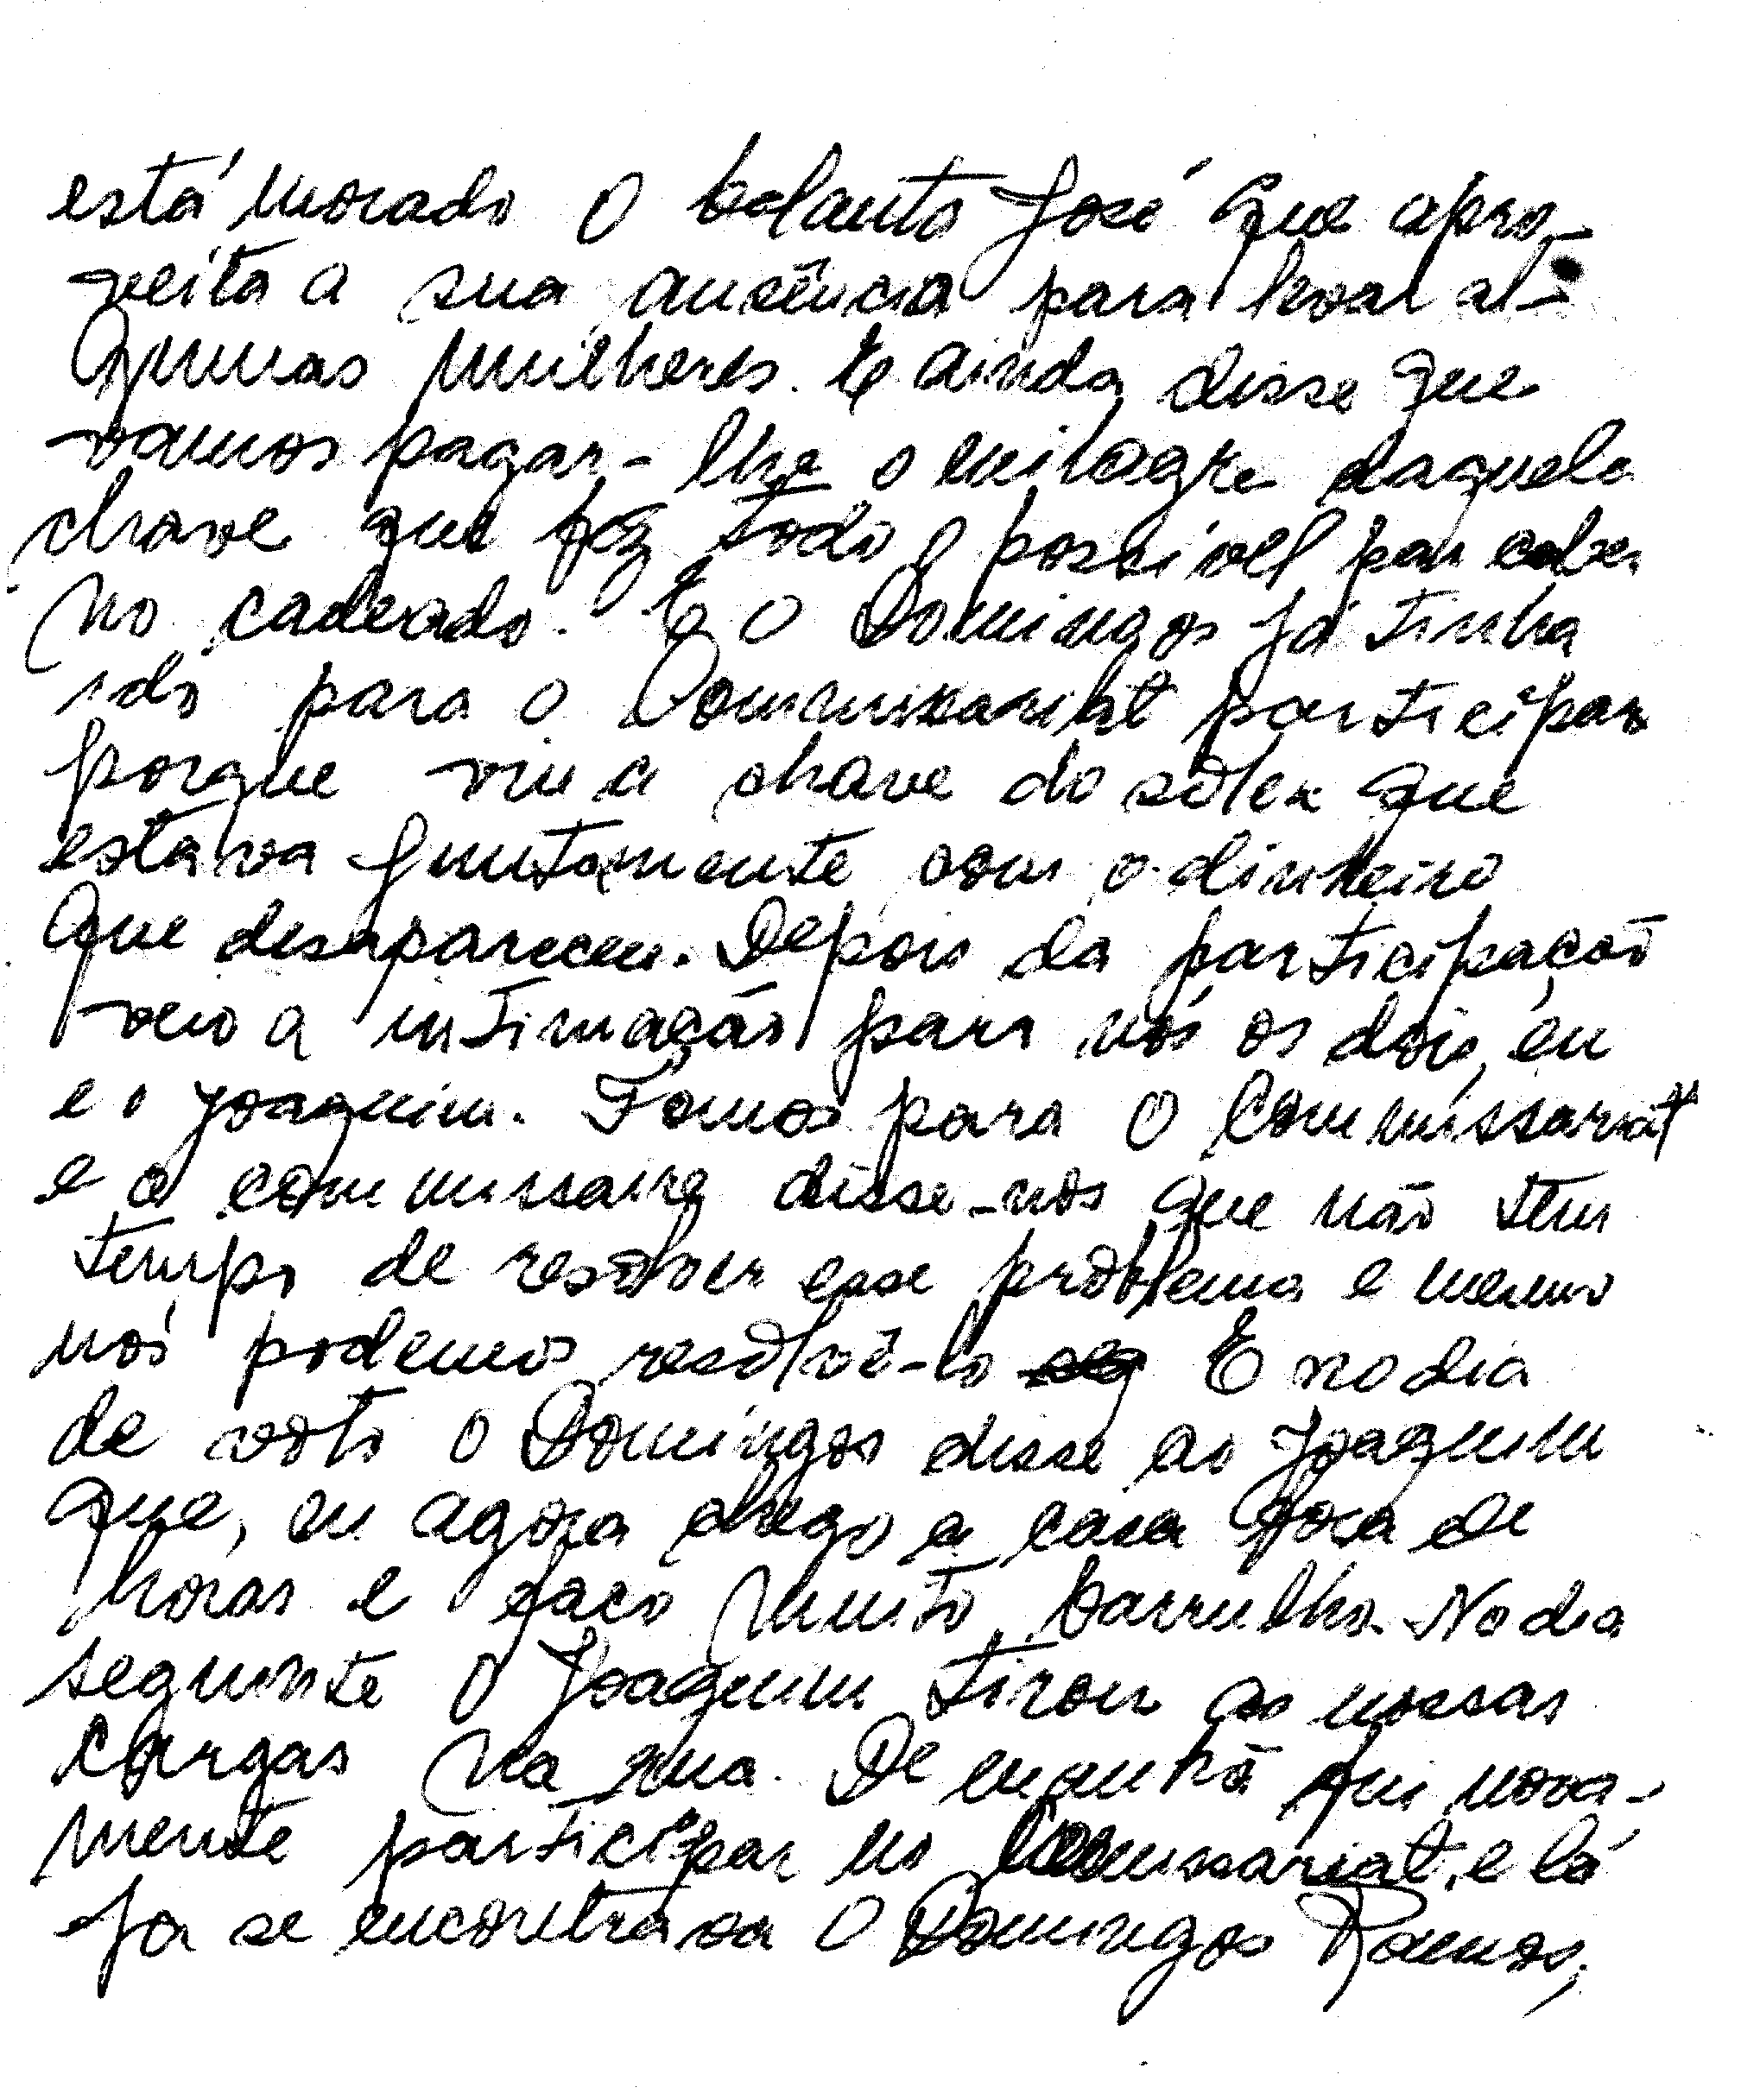 está morado O tolanto José que apro-
veita a sua ausência para levar al-
gumas mulheres. E ainda disse que
vamos pagar-lhe o milagre daquela
chave que fez todo o possível par caber
no cadeado. E O Domingos já tinha
ido para o Commissariat participar
porque viu a chave do solex que
estava juntamente com o dinheiro
que desapareceu. Depois da participação
veio a intimação para nós os dois, eu
e o Joaquim. Fomos para O Commissariat
e o commissaire disse-nos que não tem
tempo de resolver esse problema e mesmo
nós podemos resolvê-lo E no dia
de voto O Domingos disse ao Joaquim
que, eu agora chego a casa fora de
horas e faço muito barrulho. No dia
seguinte O Joaquim tirou as nossas
cargas na rua. De manhã fui nova-
mente participar no Commissariat, e lá
já se encontrava O Domingos Ramos,